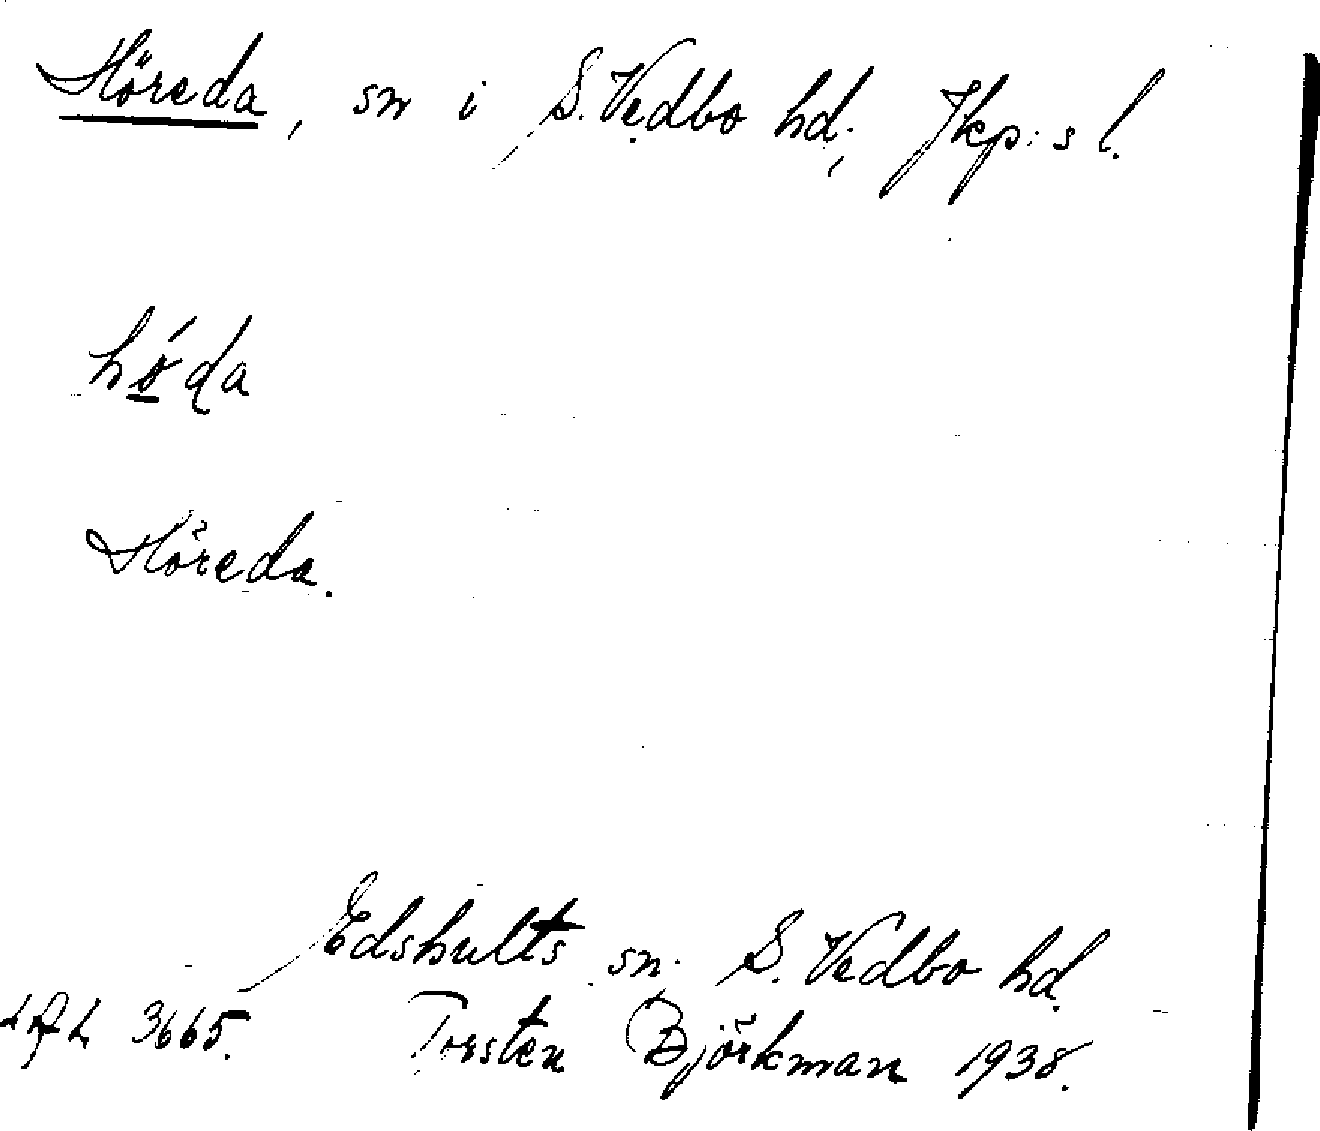 Höreda, sn i S. Vedbo hd; Jkp:s l.
hǿ̱da
Höreda.
Edshults sn; S. Vedbo hd.
LAL 3665. Torsten Björkman 1938.